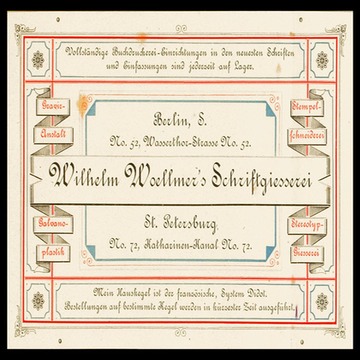 Vollständige Buchdruckerei-Einrichtungen in den neuesten Schriften
und Einfassungen sind jederzeit auf Lager.
Gravir-
Anstalt
Stempel-
schneiderei
Berlin, S.
No. 52, Wasserthor-Strasse No. 52.
Wilhelm Woellmer's Schriftgiesserei
St. Petersburg,
No. 72, Katharinen-Kanal No. 72.
Galvano-
plastik
Stereotyp-
Giesserei
Mein Hauskegel ist der französische, System Didot.
Bestellungen auf bestimmte Kegel werden in kürzester Zeit ausgeführt.